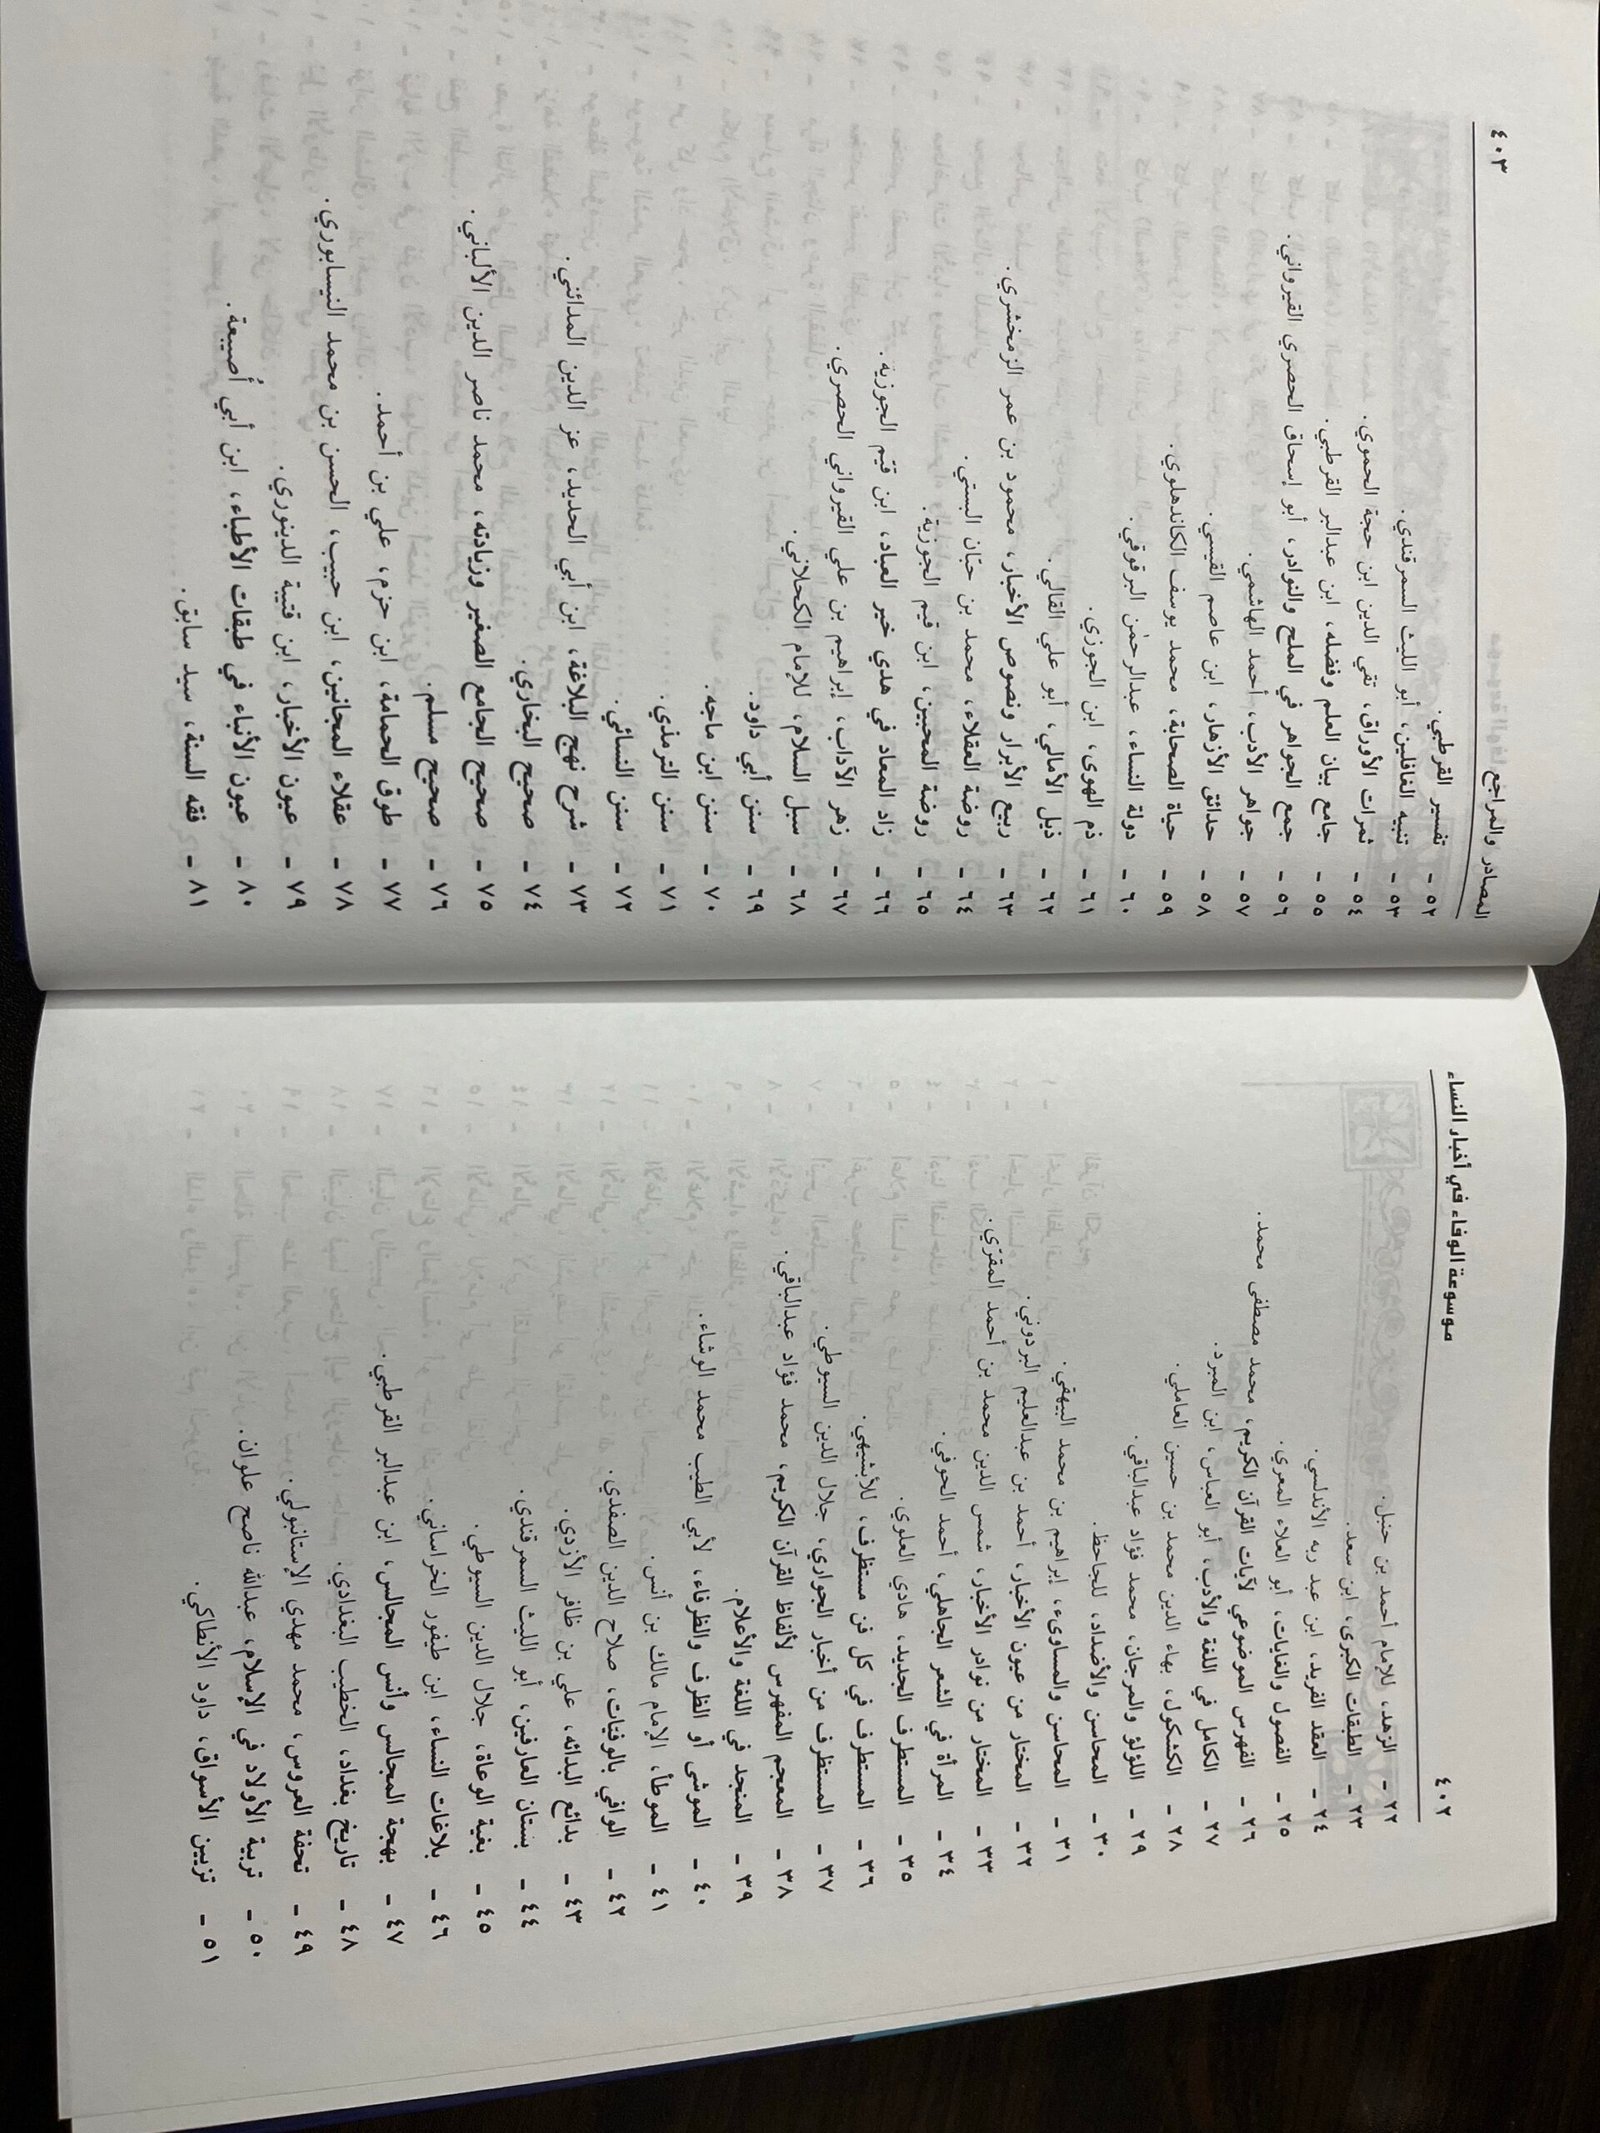 ٤٠٢
موسوعة الوفاء في أخبار النساء
٢٢ - الزهد، للإمام أحمد بن حنبل.
٢٣ - الطبقات الكبرى، ابن سعد.
٢٤ - العقد الفريد، ابن عبد ربه الأندلسي.
٢٥ - الفصول والغايات، أبو العلاء المعري.
٢٦ - الفهرس الموضوعي لآيات القرآن الكريم، محمد مصطفى محمد.
٢٧ - الكامل في اللغة والأدب، أبو العباس، ابن المبرد.
٢٨ - الكشكول، بهاء الدين محمد بن حسين العاملي.
٢٩ - اللؤلؤ والمرجان، محمد فؤاد عبدالباقي.
٣٠ - المحاسن والأضداد، للجاحظ.
٣١ - المحاسن والمساوىء، إبراهيم بن محمد البيهقي.
٣٢ - المختار من عيون الأخبار، أحمد بن عبدالعليم البردوني.
٣٣ - المختار من نوادر الأخبار، شمس الدين محمد بن أحمد المقرّي.
٣٤ - المرأة في الشعر الجاهلي، أحمد الحوفي.
٣٥ - المستطرف الجديد، هادي العلوي.
٣٦ - المستطرف في كل فن مستظرف، للأبشيهي.
٣٧ - المستظرف من أخبار الجواري، جلال الدين السيوطي.
٣٨ - المعجم المفهرس لألفاظ القرآن الكريم، محمد فؤاد عبدالباقي.
٣٩ - المنجد في اللغة والأعلام.
٤٠ - الموشى أو الظرف والظرفاء، لأبي الطيب محمد الوشاء.
٤١ - الموطأ، الإمام مالك بن أنس.
٤٢ - الوافي بالوفيّات، صلاح الدين الصفدي.
٤٣ - بدائع البدائه، علي بن ظافر الأزدي.
٤٤ - بستان العارفين، أبو الليث السمرقندي.
٤٥ - بغية الوعاة، جلال الدين السيوطي.
٤٦ - بلاغات النساء، ابن طيفور الخراساني.
٤٧ - بهجة المجالس وأنس المجالس، ابن عبدالبر القرطبي.
٤٨ - تاريخ بغداد، الخطيب البغدادي.
٤٩ - تحفة العروس، محمد مهدي الإستانبولي.
٥٠ - تربية الأولاد في الإسلام، عبدالله ناصح علوان.
٥١ - تزيين الأسواق، داود الأنطاكي.
المصادر والمراجع
٤٠٣
٥٢ - تفسير القرطبي.
٥٣ - تنبيه الغافلين، أبو الليث السمرقندي.
٥٤ - ثمرات الأوراق، تقي الدين ابن حجة الحموي.
٥٥ - جامع بيان العلم وفضله، ابن عبدالبر القرطبي.
٥٦ - جمع الجواهر في الملح والنوادر، أبو إسحاق الحصري القيرواني.
٥٧ - جواهر الأدب، أحمد الهاشمي.
٥٨ - حدائق الأزهار، ابن عاصم القيسي.
٥٩ - حياة الصحابة، محمد يوسف الكاندهلوي.
٦٠ - دولة النساء، عبدالرحمٰن البرقوقي.
٦١ - ذم الهوى، ابن الجوزي.
٦٢ - ذيل الأمالي، أبو علي القالي.
٦٣ - ربيع الأبرار ونصوص الأخبار، محمود بن عمر الزمخشري.
٦٤ - روضة العقلاء، محمد بن حبّان البستي.
٦٥ - روضة المحبين، ابن قيم الجوزية.
٦٦ - زاد المعاد في هدي خير العباد، ابن قيّم الجوزية.
٦٧ - زهر الآداب، إبراهيم بن علي القيرواني الحصري.
٦٨ - سبل السلام، للإمام الكحلاني.
٦٩ - سنن أبي داود.
٧٠ - سنن ابن ماجه.
٧١ - سنن الترمذي.
٧٢ - سنن النسائي.
٧٣ - شرح نهج البلاغة، ابن أبي الحديد، عز الدين المدائني.
٧٤ - صحيح البخاري.
٧٥ - صحيح الجامع الصغير وزيادته، محمد ناصر الدين الألباني.
٧٦ - صحيح مسلم.
٧٧ - طوق الحمامة، ابن حزم، علي بن أحمد.
٧٨ - عقلاء المجانين، ابن حبيب، الحسن بن محمد النيسابوري.
٧٩ - عيون الأخبار، ابن قتيبة الدينوري.
٨٠ - عيون الأنباء في طبقات الأطباء، ابن أبي أُصيبعة.
٨١ - فقه السنة، سيد سابق.